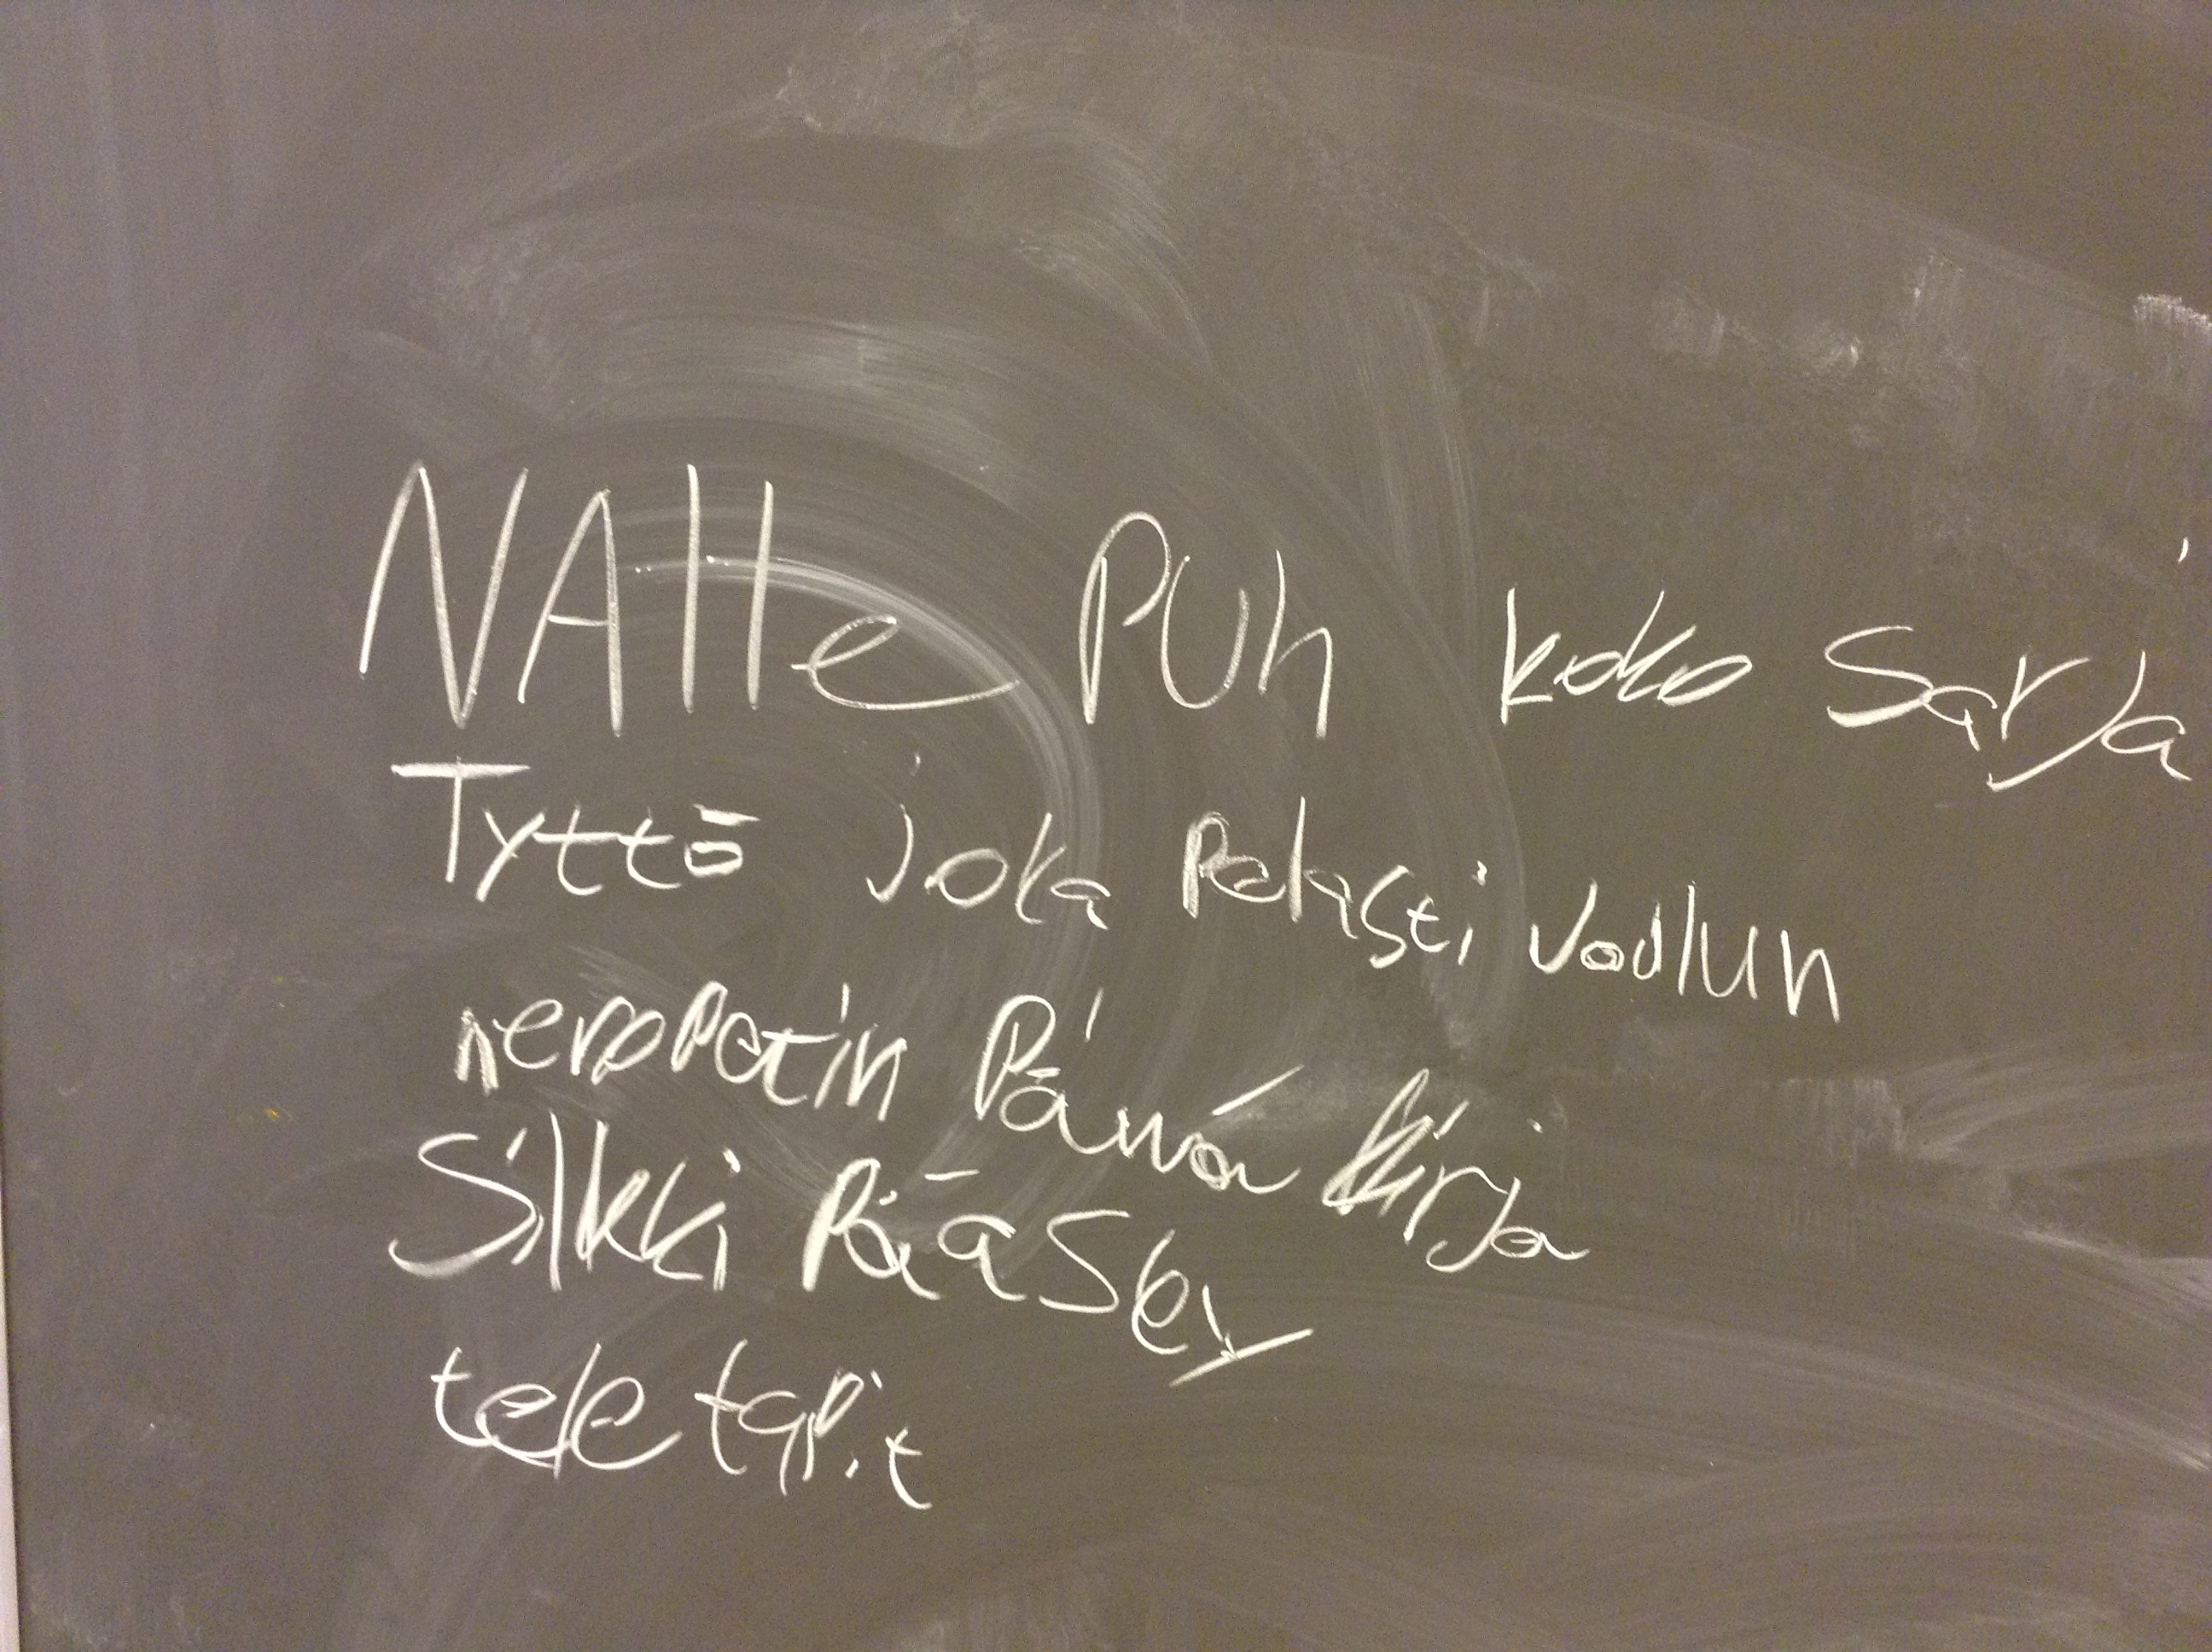 NAlle PUh koko Sarja
Tyttö joka Pelasti Joulun
neropatin Päivä kirja
Silkki Pääsky
tele tapit